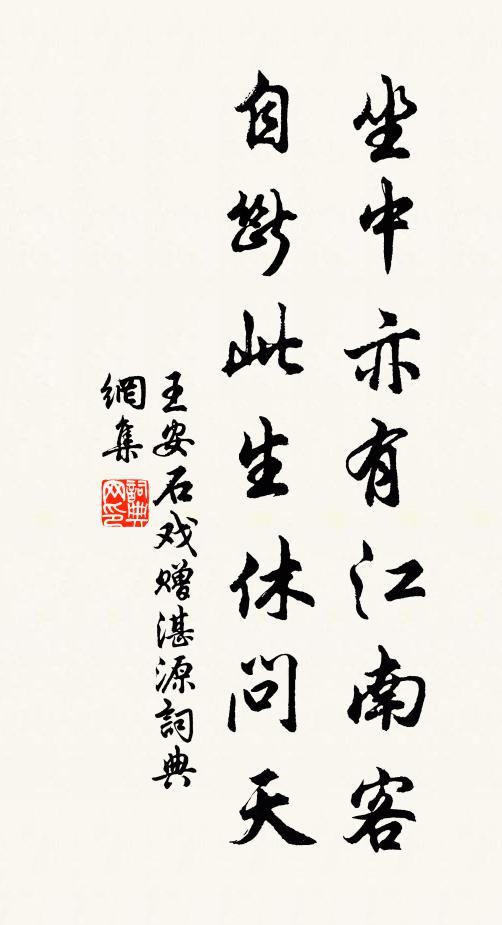 坐中亦有江南客
自斷此生休問天
王安石戏赠湛源詞典
網集
詞典
网印